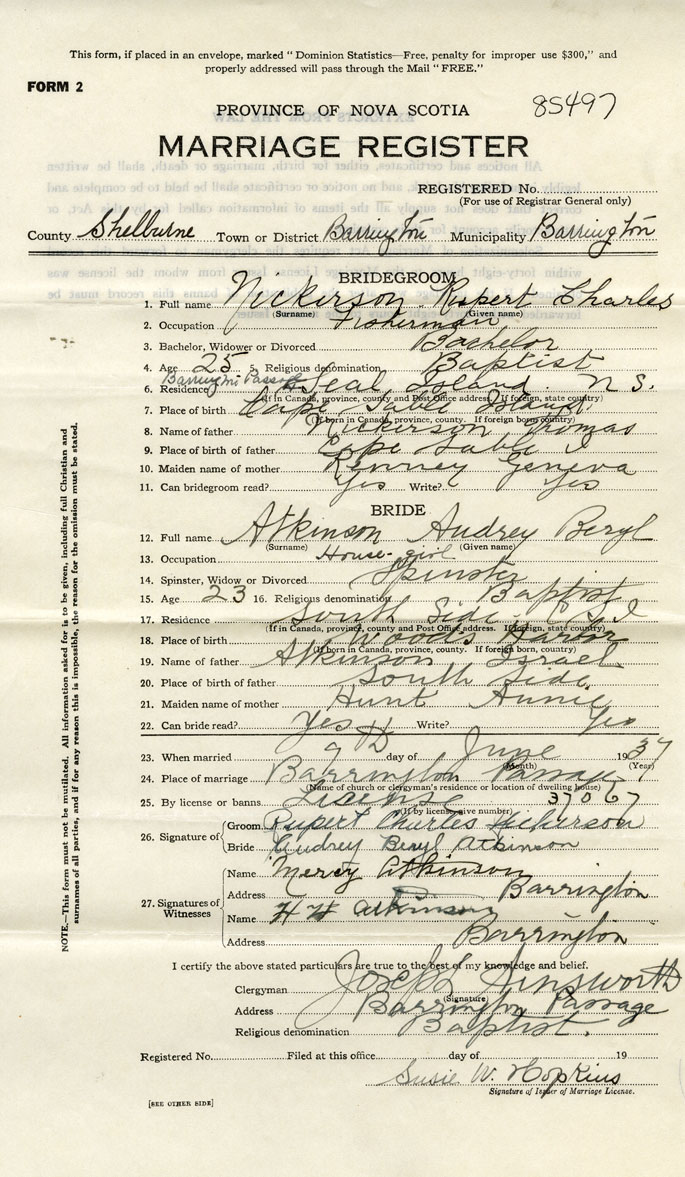 This form, if placed in an envelope, marked " Dominion Statistics—Free, penalty for improper use $300," and
properly addressed will pass through the Mail " FREE."
FORM 2
PROVINCE OF NOVA SCOTIA 85497
MARRIAGE REGISTER
REGISTERED No.
(For use of Registrar General only)
County Shelburne Town or District Barrington Municipality Barrington
BRIDEGROOM
1. Full name Nickerson Rupert Charles
(Surname) (Given name)
2. Occupation Fisherman
3. Bachelor, Widower or Divorced Bachelor
4. Age 25 5. Religious denomination Baptist
Barrington Passage
6. Residence Seal Island N S.
(If in Canada, province, county and Post Office address. If foreign, state country)
7. Place of birth Cape Sable Island
(If born in Canada, province, county. If foreign born country)
8. Name of father Nickerson Thomas
9. Place of birth of father Cape Sable I
10. Maiden name of mother Kenney Geneva
11. Can bridegroom read? Yes Write? Yes
BRIDE
12. Full name Atkinson Audrey Beryl
(Surname) (Given name)
13. Occupation House-girl
14. Spinster, Widow or Divorced Spinster
15. Age 23 16. Religious denomination Baptist
17. Residence South Side, C S I
(If in Canada, province, county and Post Office address. If foreign, state country)
18. Place of birth Woods Harbor
(If born in Canada, province, county. If foreign born, country)
19. Name of father Atkinson Israel
20. Place of birth of father South Side
21. Maiden name of mother Hunt Annie
22. Can bride read? Yes Write? Yes
23. When married 9th day of June 1937
(Month) (Year)
24. Place of marriage Barrington Passage
(Name of church or clergyman's residence or location of dwelling house)
25. By license or banns License 37067
(If by license give number)
26. Signature of Groom Rupert Charles Nickerson
Bride Audrey Beryl Atkinson
27. Signatures of Witnesses
Name Mercy Atkinson
Address Barrington
Name H H Atkinson
Address Barrington
I certify the above stated particulars are true to the best of my knowledge and belief.
Clergyman Joseph Ainsworth
(Signature)
Address Barrington Passage
Religious denomination Baptist.
Registered No. Filed at this office day of 19
Susie W. Hopkins
Signature of Issuer of Marriage License.
[SEE OTHER SIDE]
NOTE.—This form must not be mutilated. All information asked for is to be given, including full Christian and
surnames of all parties, and if for any reason this is impossible, the reason for the omission must be stated.